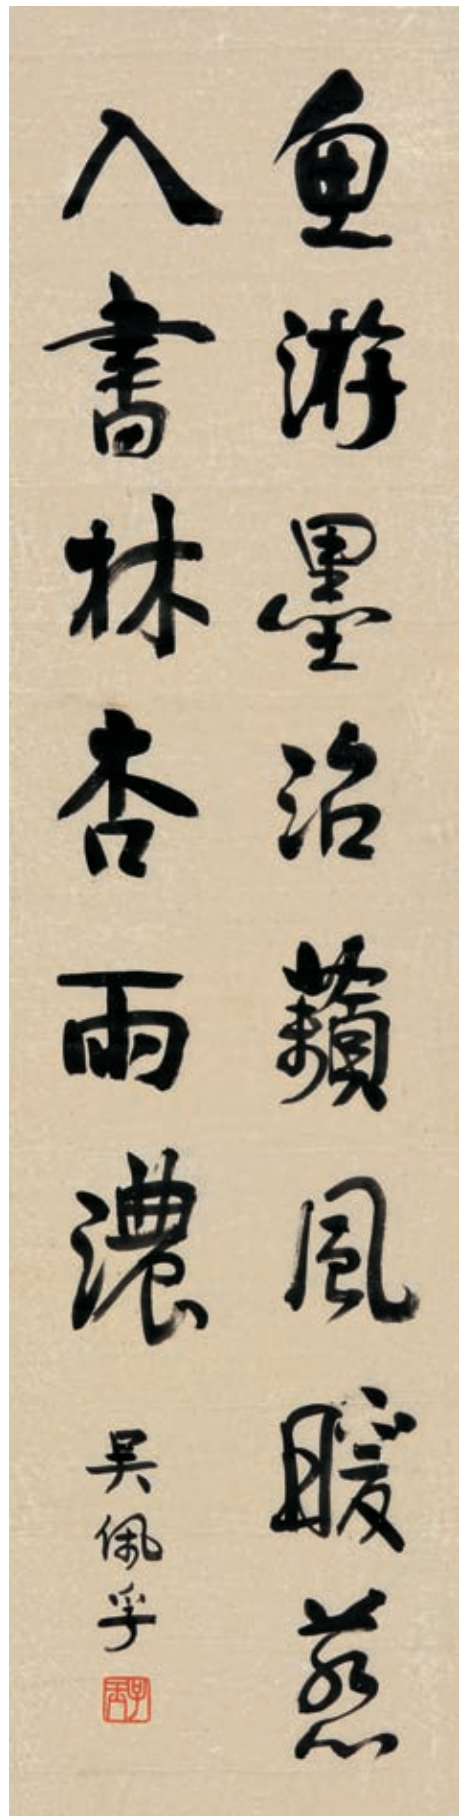 魚游墨沼蘋風暖燕
入書林杏雨濃
吳佩孚